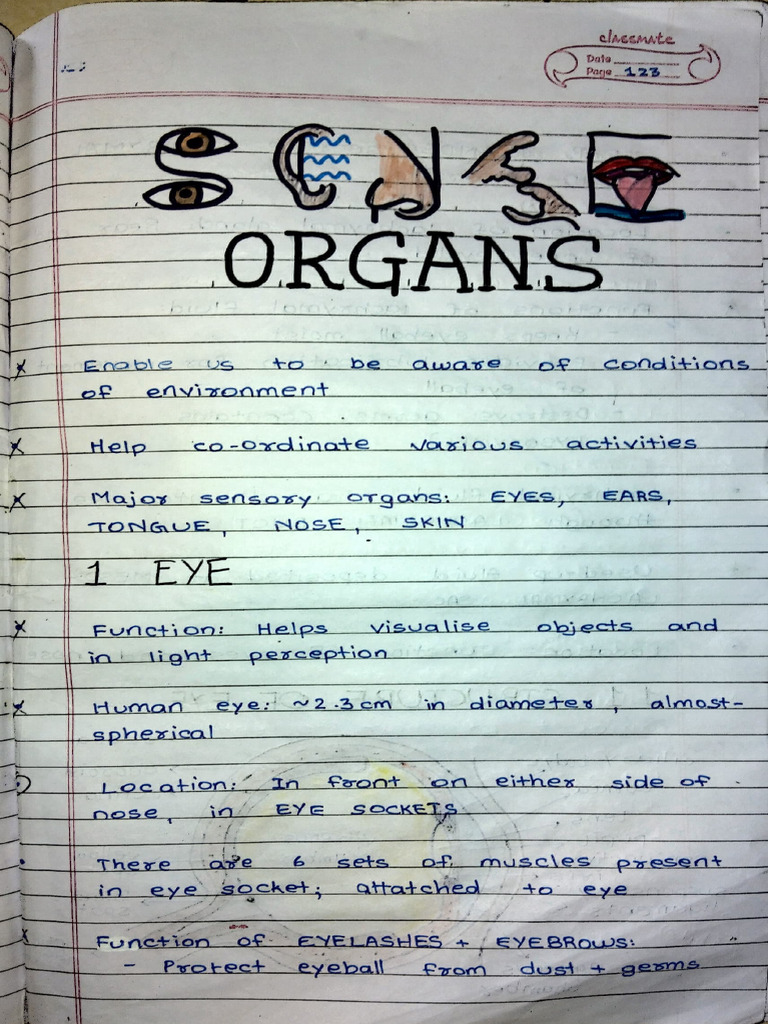 classmate
Date
Page 123
SENSE
ORGANS
Enable us to be aware of conditions
of environment
Help co-ordinate various activities
Major sensory organs: EYES, EARS,
TONGUE, NOSE, SKIN
1 EYE
Function: Helps visualise objects and
in light perception
Human eye: ~2.3cm in diameter, almost-
spherical
Location: In front on either side of
nose, in EYE SOCKETS
There are 6 sets of muscles present
in eye socket; attatched to eye
Function of EYELASHES + EYEBROWS:
- Protect eyeball from dust + germs